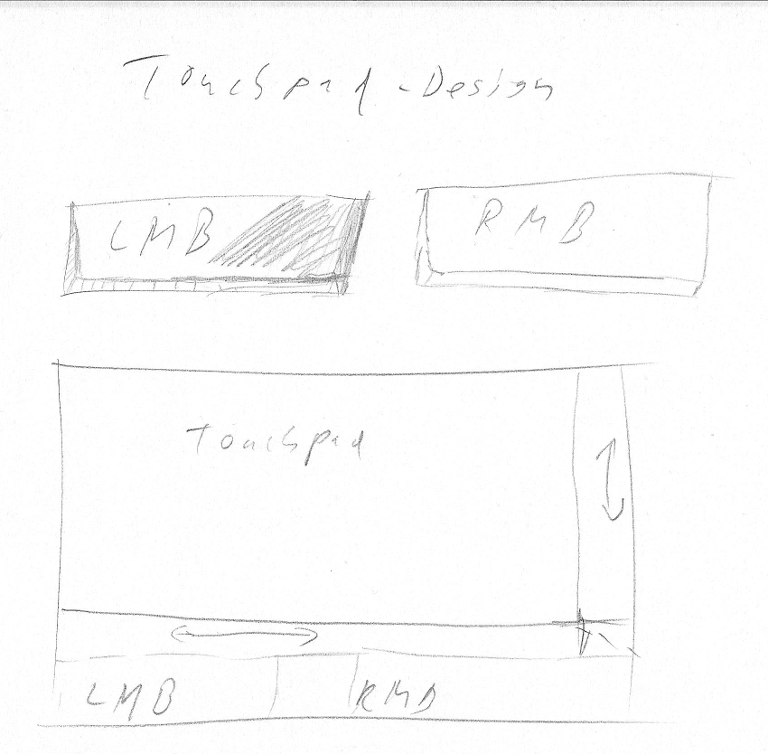 Touchpad-Design
LMB
RMB
Touchpad
LMB
RMB